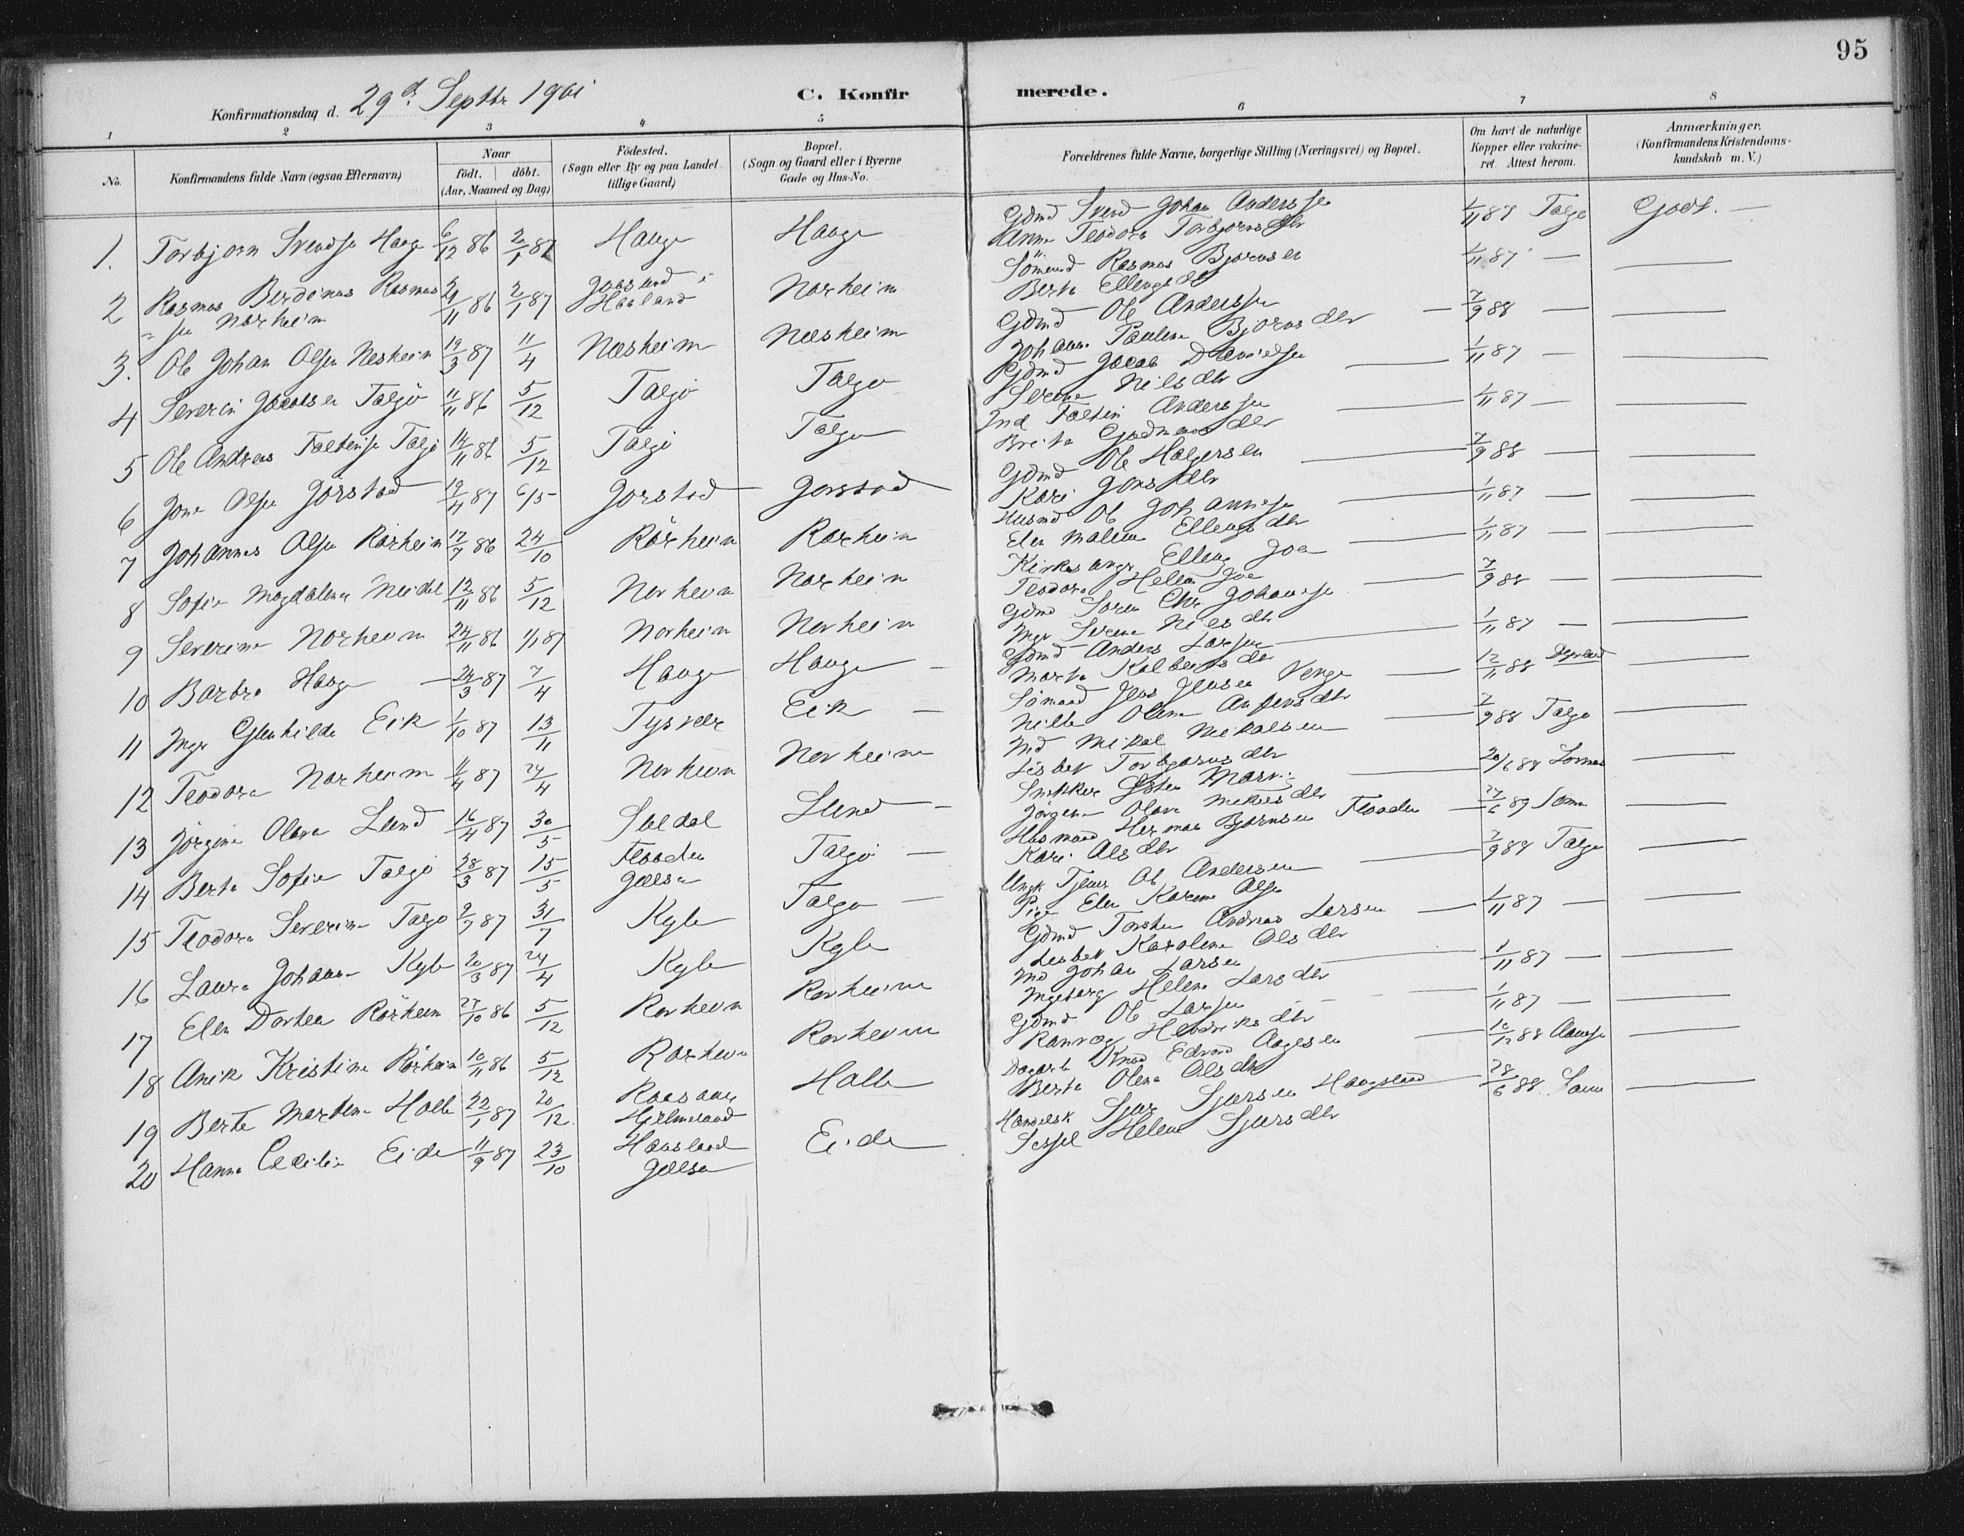 95
Konfirmationsdag d. 29d Septbr 1901
C. Konfirmerede.
1 2 3 4 5 6 7 8
No. Konfirmandens fulde Navn (ogsaa Efternavn) Naar født. døbt. (Aar, Maaned og Dag) Fødested. (Sogn eller By og paa Landet tillige Gaard) Bopæl. (Sogn og Gaard eller i Byerne Gade og Hus-No. Forældrenes fulde Navne, borgerlige Stilling (Næringsvei) og Bopæl. Om havt de naturlige Kopper eller vakcineret. Attest herom. Anmærkninger. (Konfirmandens Kristendomskundskab m. V.)
1. Torbjørn Svendsen Hauge 6/12 86 2/1 87 Hauge Hauge Gdmd Svend Johan Anderssen
Anna Teodora Torbjørnsdtr 1/11 87 Talgø Godt. —
2 Rasmus Berdinus Rasmussen Norheim 86 2/1 87 Norheim Sømand Rasmus Bjørnsen
Berta Ellingsdtr 1/11 87 —
3. Ole Johan Olsen Nesheim 19/3 87 11/4 Nesheim Nesheim Gdmd Ole Anderssen
Johanna Pauline Bjørnsdtr 7/9 88 —
4 Severin Jacobsen Talgø 11/11 86 5/12 Talgø Talgø Gdmd Jacob Danielsen
Serene Nilsdtr 1/11 87 —
5 Ole Andreas Faltinsen Talgø 14/11 86 5/12 Talgø Talgø Ind Faltin Anderssen
Brita Gudmunsdtr 1/11 87 —
6 Jone Olsen Jørstad 19/4 87 6/5 Jørstad Jørstad Gdmd Ole Halgersen
Kari Jonsdtr 7/9 88 —
7 Johannes Olsen Rørheim 17/7 86 24/10 Rørheim Rørheim Husmd Ole Johannesen
Elen Malene Ellingsdtr 1/11 87 —
8 Sofie Magdalena Meidel 12/11 86 5/12 Norheim Norheim Kirkesanger Elling Joa
Teodora Helene Joa 1/11 87 —
9 Severine Norheim 24/11 86 1/1 87 Norheim Norheim Gdmd Søren Chr Johansen
Inger Serene Nilsdtr 7/9 88 —
10 Barbra Hauge 24/3 87 7/4 Hauge Hauge Gdmd Anders Larsen
Marta Kolbeinsdtr 1/11 87 —
11 Inger Gunhilda Eik 1/10 87 13/11 Tysvær Eik — Sømand Jens Jensen Venge
Nille Olene Andersdtr 12/11 88
12 Teodora Norheim 11/4 87 24/4 Norheim Norheim Ind Mikal Mikalsen
Lisbet Torbjørnsdtr 7/9 88 Talgø
13 Jørgine Olava Lund 16/4 87 30/5 Suldal Lund — Snekker
Jørgine Olava 20/6 88
14 Berta Sofie Talgø 28/3 87 15/5 Flaaden Jælsa Talgø — Husmand Herman Bjørnsen Flaaden
Kari Olsdtr 27/6 89
15 Teodora Severine Talgø 2/7 87 31/7 Talgø — Ungk Tjener Ole Andersen
Pige Elen Karine Olsen 7/9 88 Talgø
16 Laura Johanne Kylle 20/3 87 24/4 Kylle Kylle Gdmd Torsten Andreas Larsen
Lisbet Karoline Olsdtr 1/11 87 —
17 Elen Dortea Rørheim 27/10 86 5/12 Rørheim Rørheim Ind Johan Larsen
Ingeborg Helene Larsdtr 1/11 87 —
18 Anik Kristine Rørheim 10/11 86 5/12 Rørheim Rørheim Gdmd Ole Larsen
Ranveg Henriksdtr 1/11 87 —
19 Berta Martine Halle 22/1 87 20/12 Hjelmeland Halle Dagarb Knud Edvard Aagesen
Berta Olene Olsdtr 10/12 88
20 Hanna Cecilie Eide 11/9 87 23/10 Haugland Jælsa Eide Handelsk Sjur Sjursen Haugland
Sessel Helene Sjursdtr 28/6 88